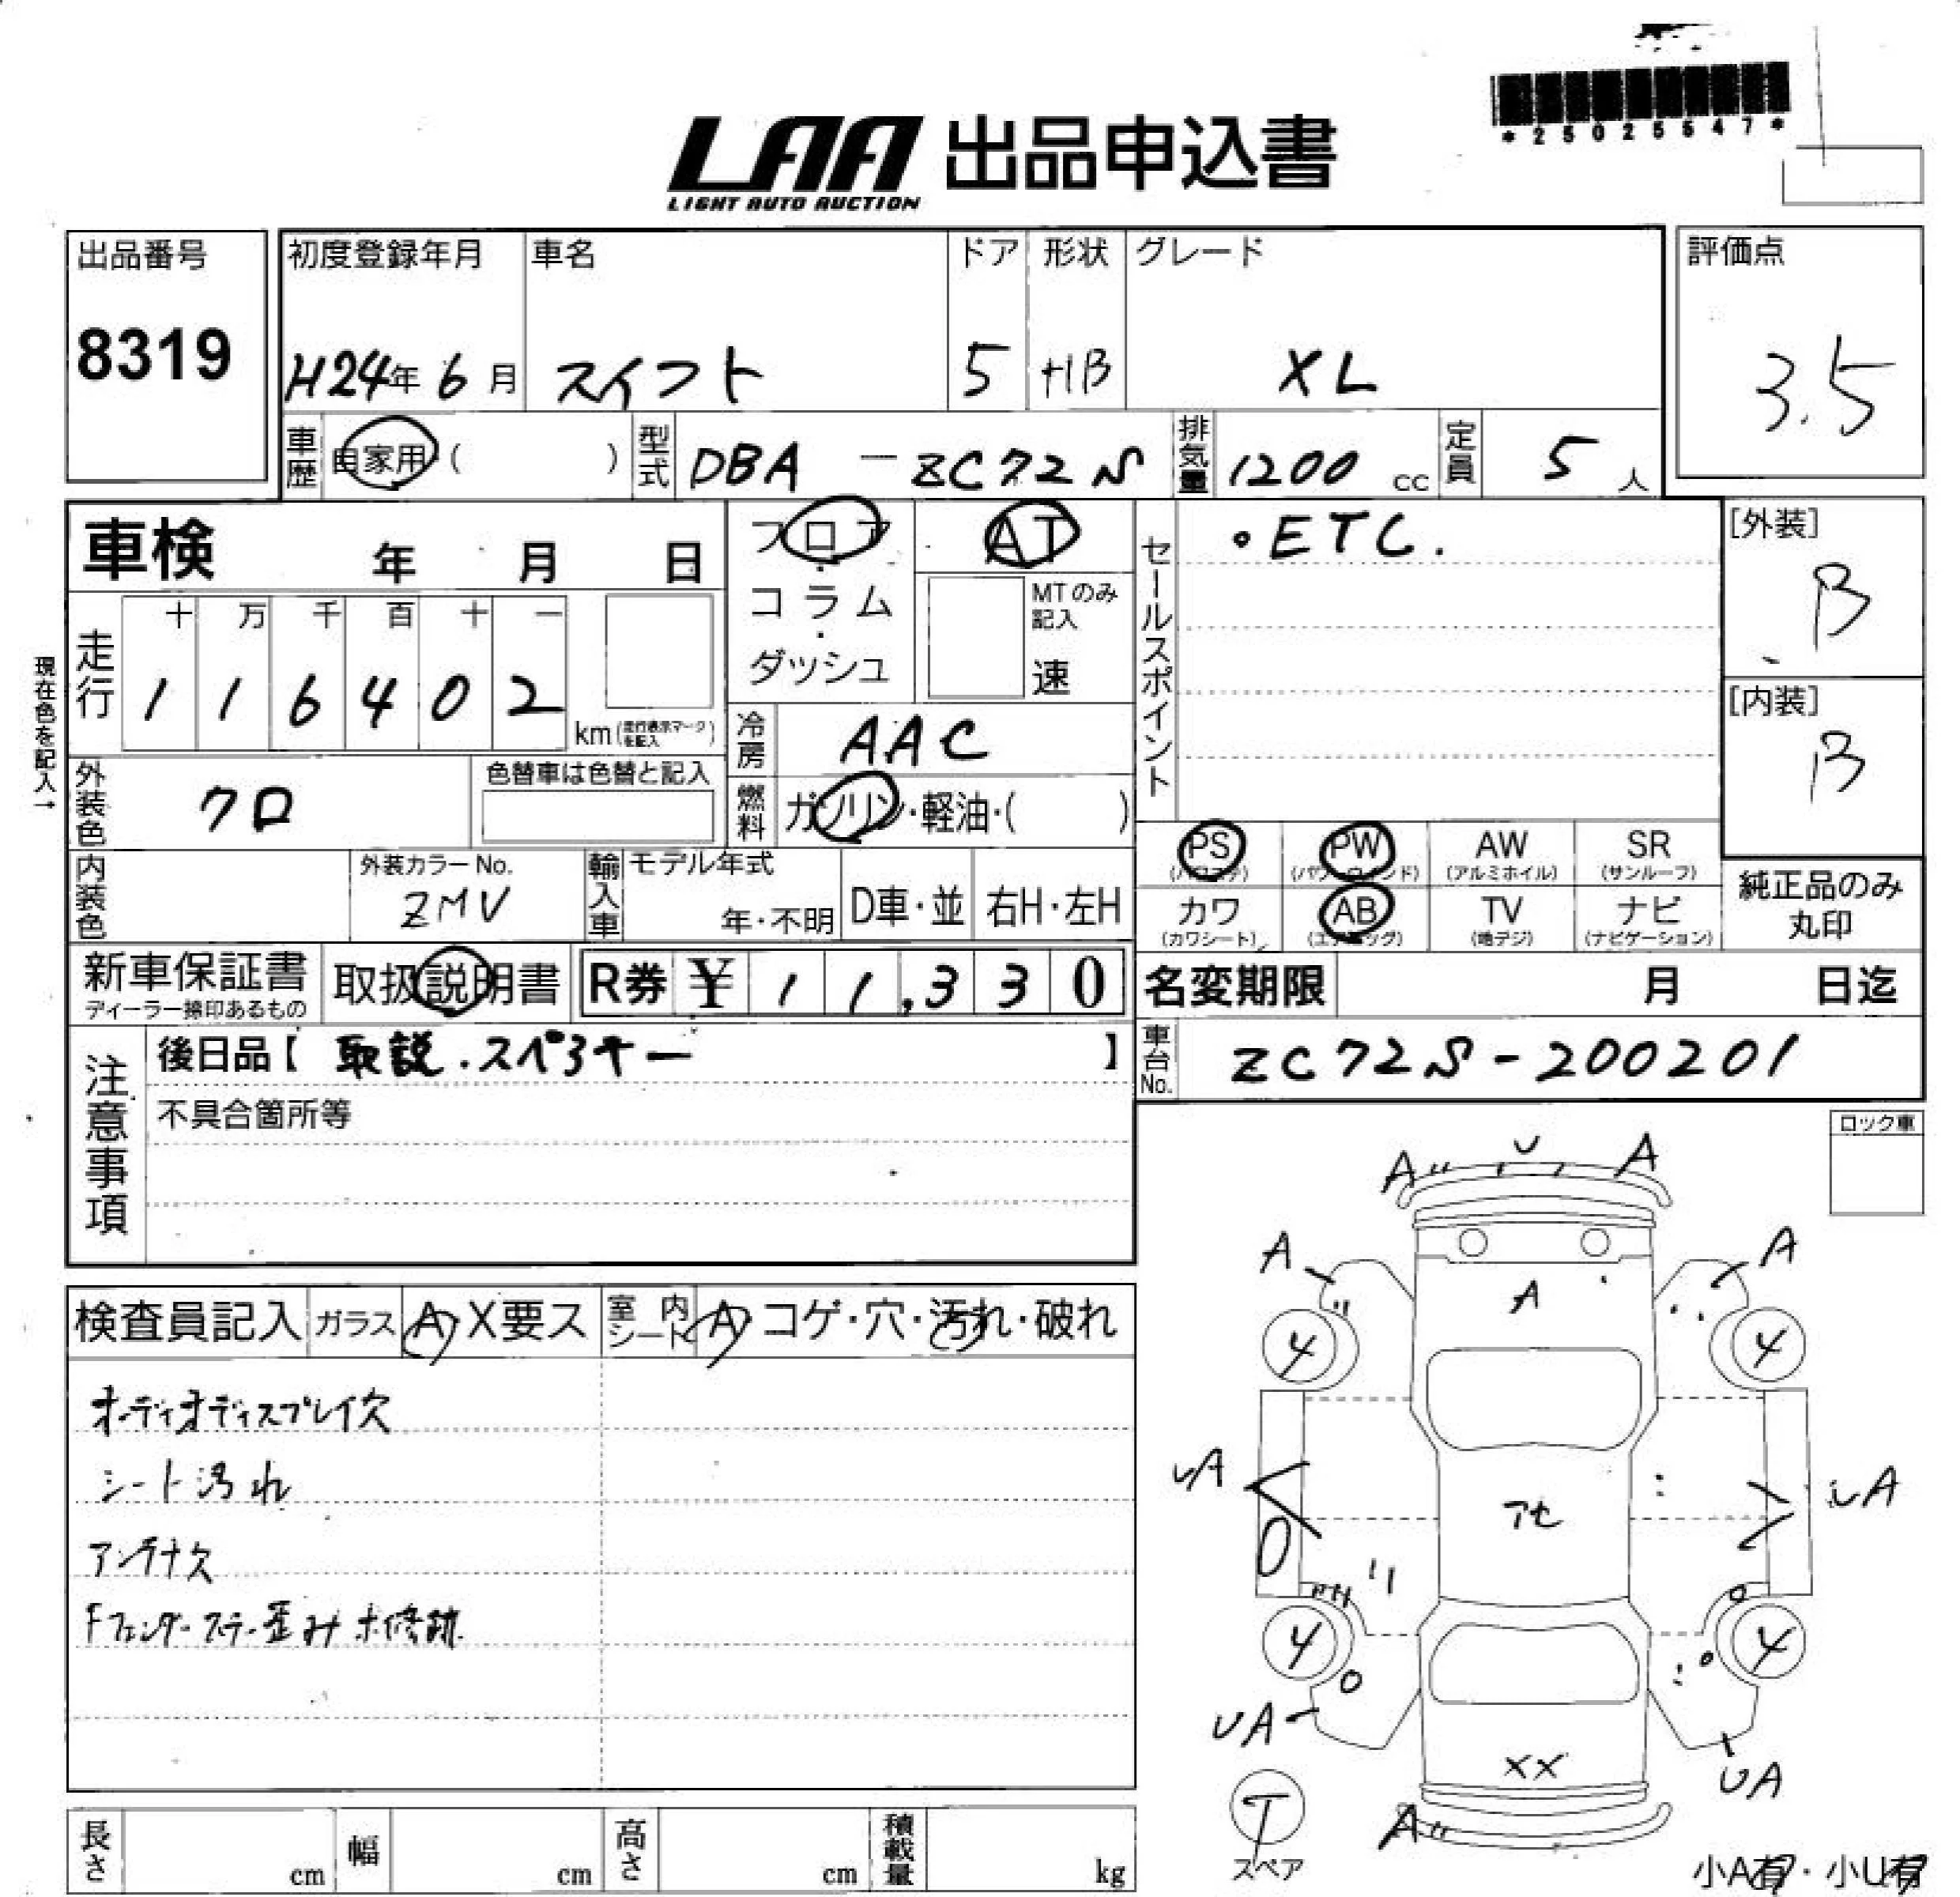 *25025547*
LAA 出品申込書
LIGHT AUTO AUCTION
出品番号 8319
初度登録年月 H24年 6月
車名 スイフト
ドア 5
形状 HB
グレード XL
評価点 3.5
車歴 自家用 ( )
型式 DBA - ZC72S
排気量 1200 cc
定員 5 人
車検 年 月 日
フロア・コラム・ダッシュ
AT
MTのみ記入 速
セールスポイント
・ETC.
[外装] B
[内装] B
現在色を記入→
走行 十 万 千 百 十 一
1 1 6 4 0 2 km (走行表示マークを記入)
冷房 AAC
燃料 ガソリン・軽油・( )
外装色 クロ
色替車は色替と記入
内装色
外装カラーNo. ZMV
輸入車 モデル年式 年・不明
D車・並 右H・左H
PS (パワステ) PW (パワーウィンド) AW (アルミホイル) SR (サンルーフ)
カワ (カワシート) AB (エアバッグ) TV (地デジ) ナビ (ナビゲーション)
純正品のみ丸印
新車保証書 ディーラー捺印あるもの
取扱説明書
R券 ¥ 1 1,3 3 0
名変期限 月 日迄
注意事項
後日品【 取説.スペアキー 】
車台No. ZC72S-200201
不具合箇所等
ロック車
検査員記入 ガラス A X要ス
室内シート A コゲ・穴・汚れ・破れ
オーディオディスプレイ欠
シート汚れ
アンテナ欠
Fフェンダーステー歪み 木修跡
A U A
A A
A
4 4
UA アセ UA
4 4
UA XX UA
A
T
スペア
小A有・小U有
長さ cm 幅 cm 高さ cm 積載量 kg